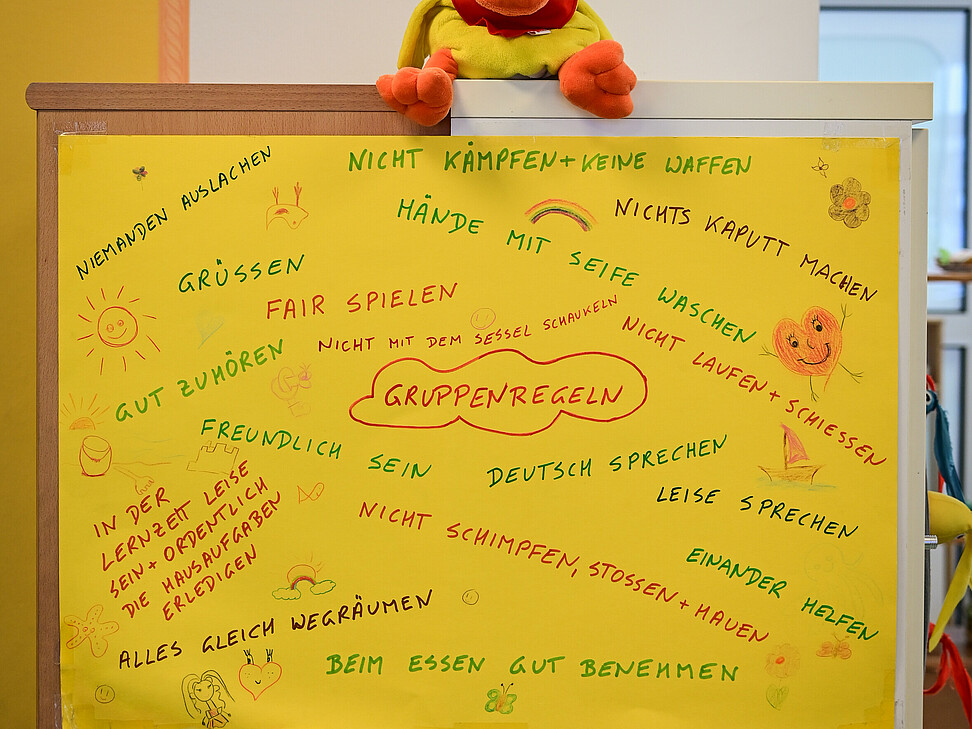 NICHT KÄMPFEN + KEINE WAFFEN
NIEMANDEN AUSLACHEN
HÄNDE MIT SEIFE WASCHEN
NICHTS KAPUTT MACHEN
GRÜSSEN
FAIR SPIELEN
NICHT MIT DEM SESSEL SCHAUKELN
NICHT LAUFEN + SCHIESSEN
GUT ZUHÖREN
GRUPPENREGELN
FREUNDLICH SEIN
DEUTSCH SPRECHEN
LEISE SPRECHEN
IN DER
LERNZEIT LEISE
SEIN + ORDENTLICH
DIE HAUSAUFGABEN
ERLEDIGEN
NICHT SCHIMPFEN, STOSSEN + HAUEN
EINANDER HELFEN
ALLES GLEICH WEGRÄUMEN
BEIM ESSEN GUT BENEHMEN